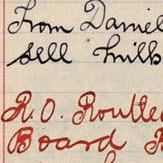 From Daniel
sell milk
R.O. Routle
Board